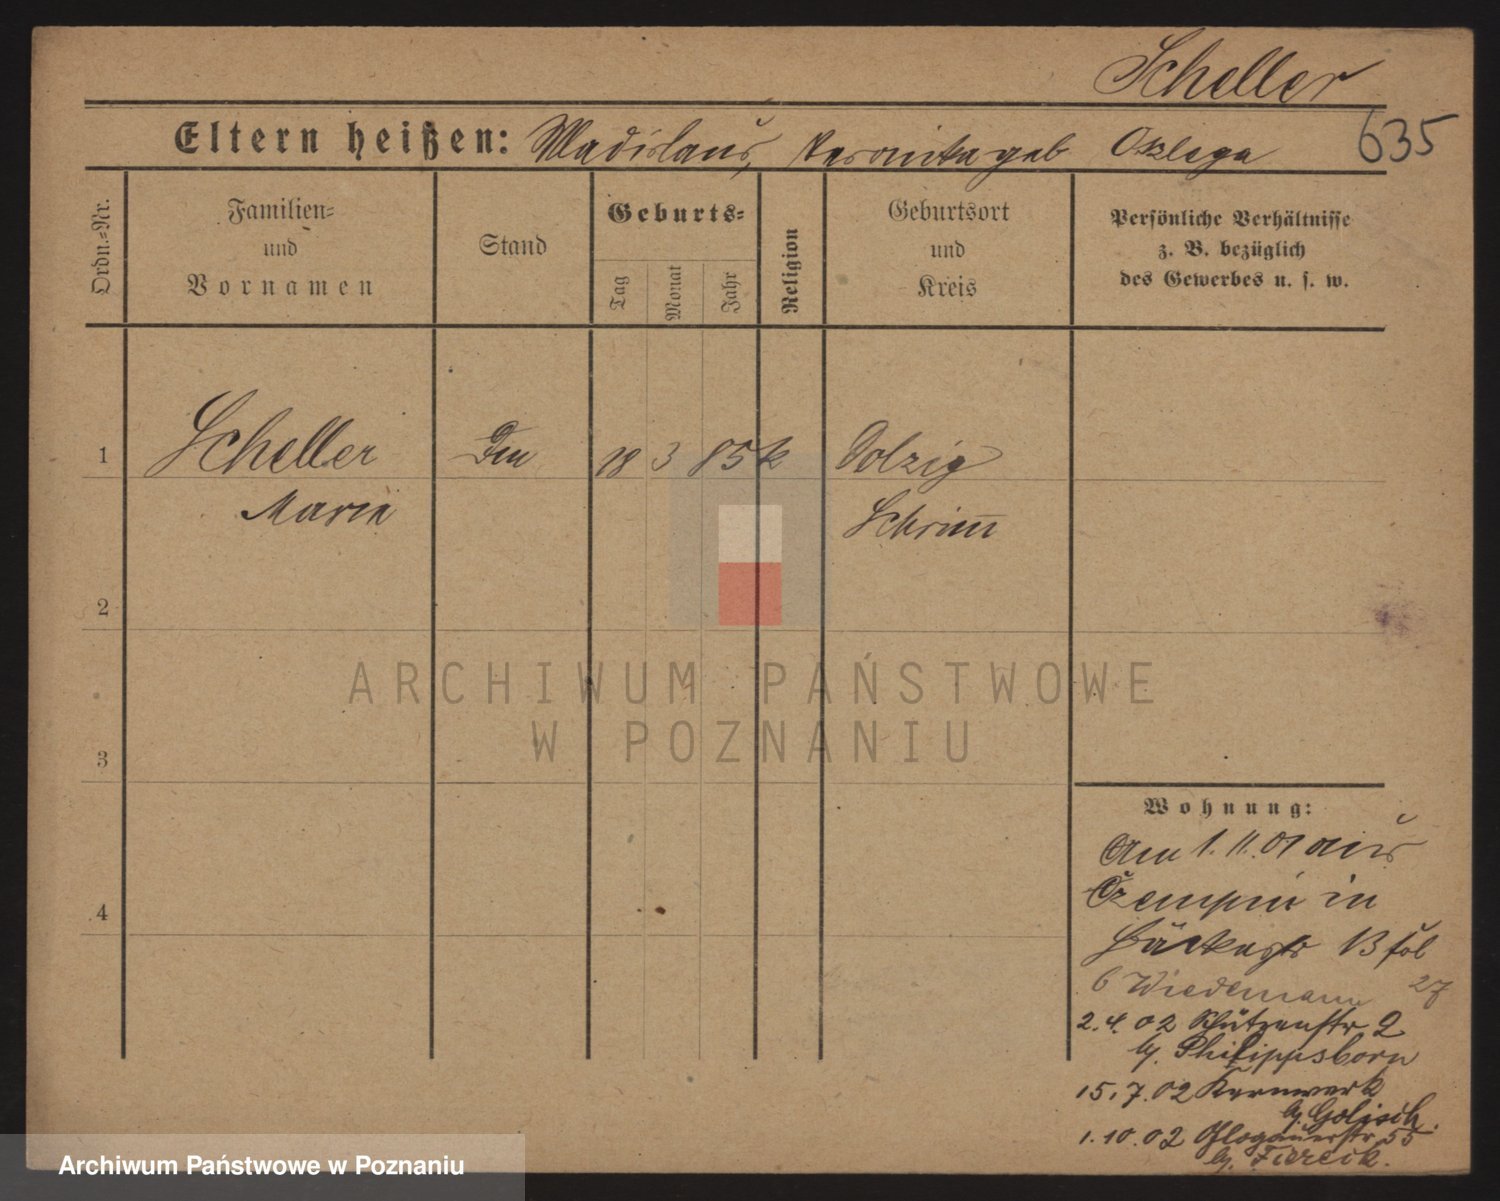 Scheller
635
Eltern heißen: Wladislaus, Veronika geb Oslega
Ordn.-Nr.
Familien-
und
Vornamen
Stand
Geburts-
Tag
Monat
Jahr
Religion
Geburtsort
und
Kreis
Persönliche Verhältnisse
z. B. bezüglich
des Gewerbes u. s. w.
1
Scheller
18 3 85 k
Dolzig
Maria
Schrim̅
2
3
4
ARCHIWUM PAŃSTWOWE
W POZNANIU
Wohnung:
Am 1.11.01 aus
Czempin in
13 fol
b Wiedemann 27
2.4.02 Schützenstr 2
by. Philippsborn
15.7.02 Kernwerk
by. Golisch.
1.10.02 Glogauerstr 55
by.
Archiwum Państwowe w Poznaniu